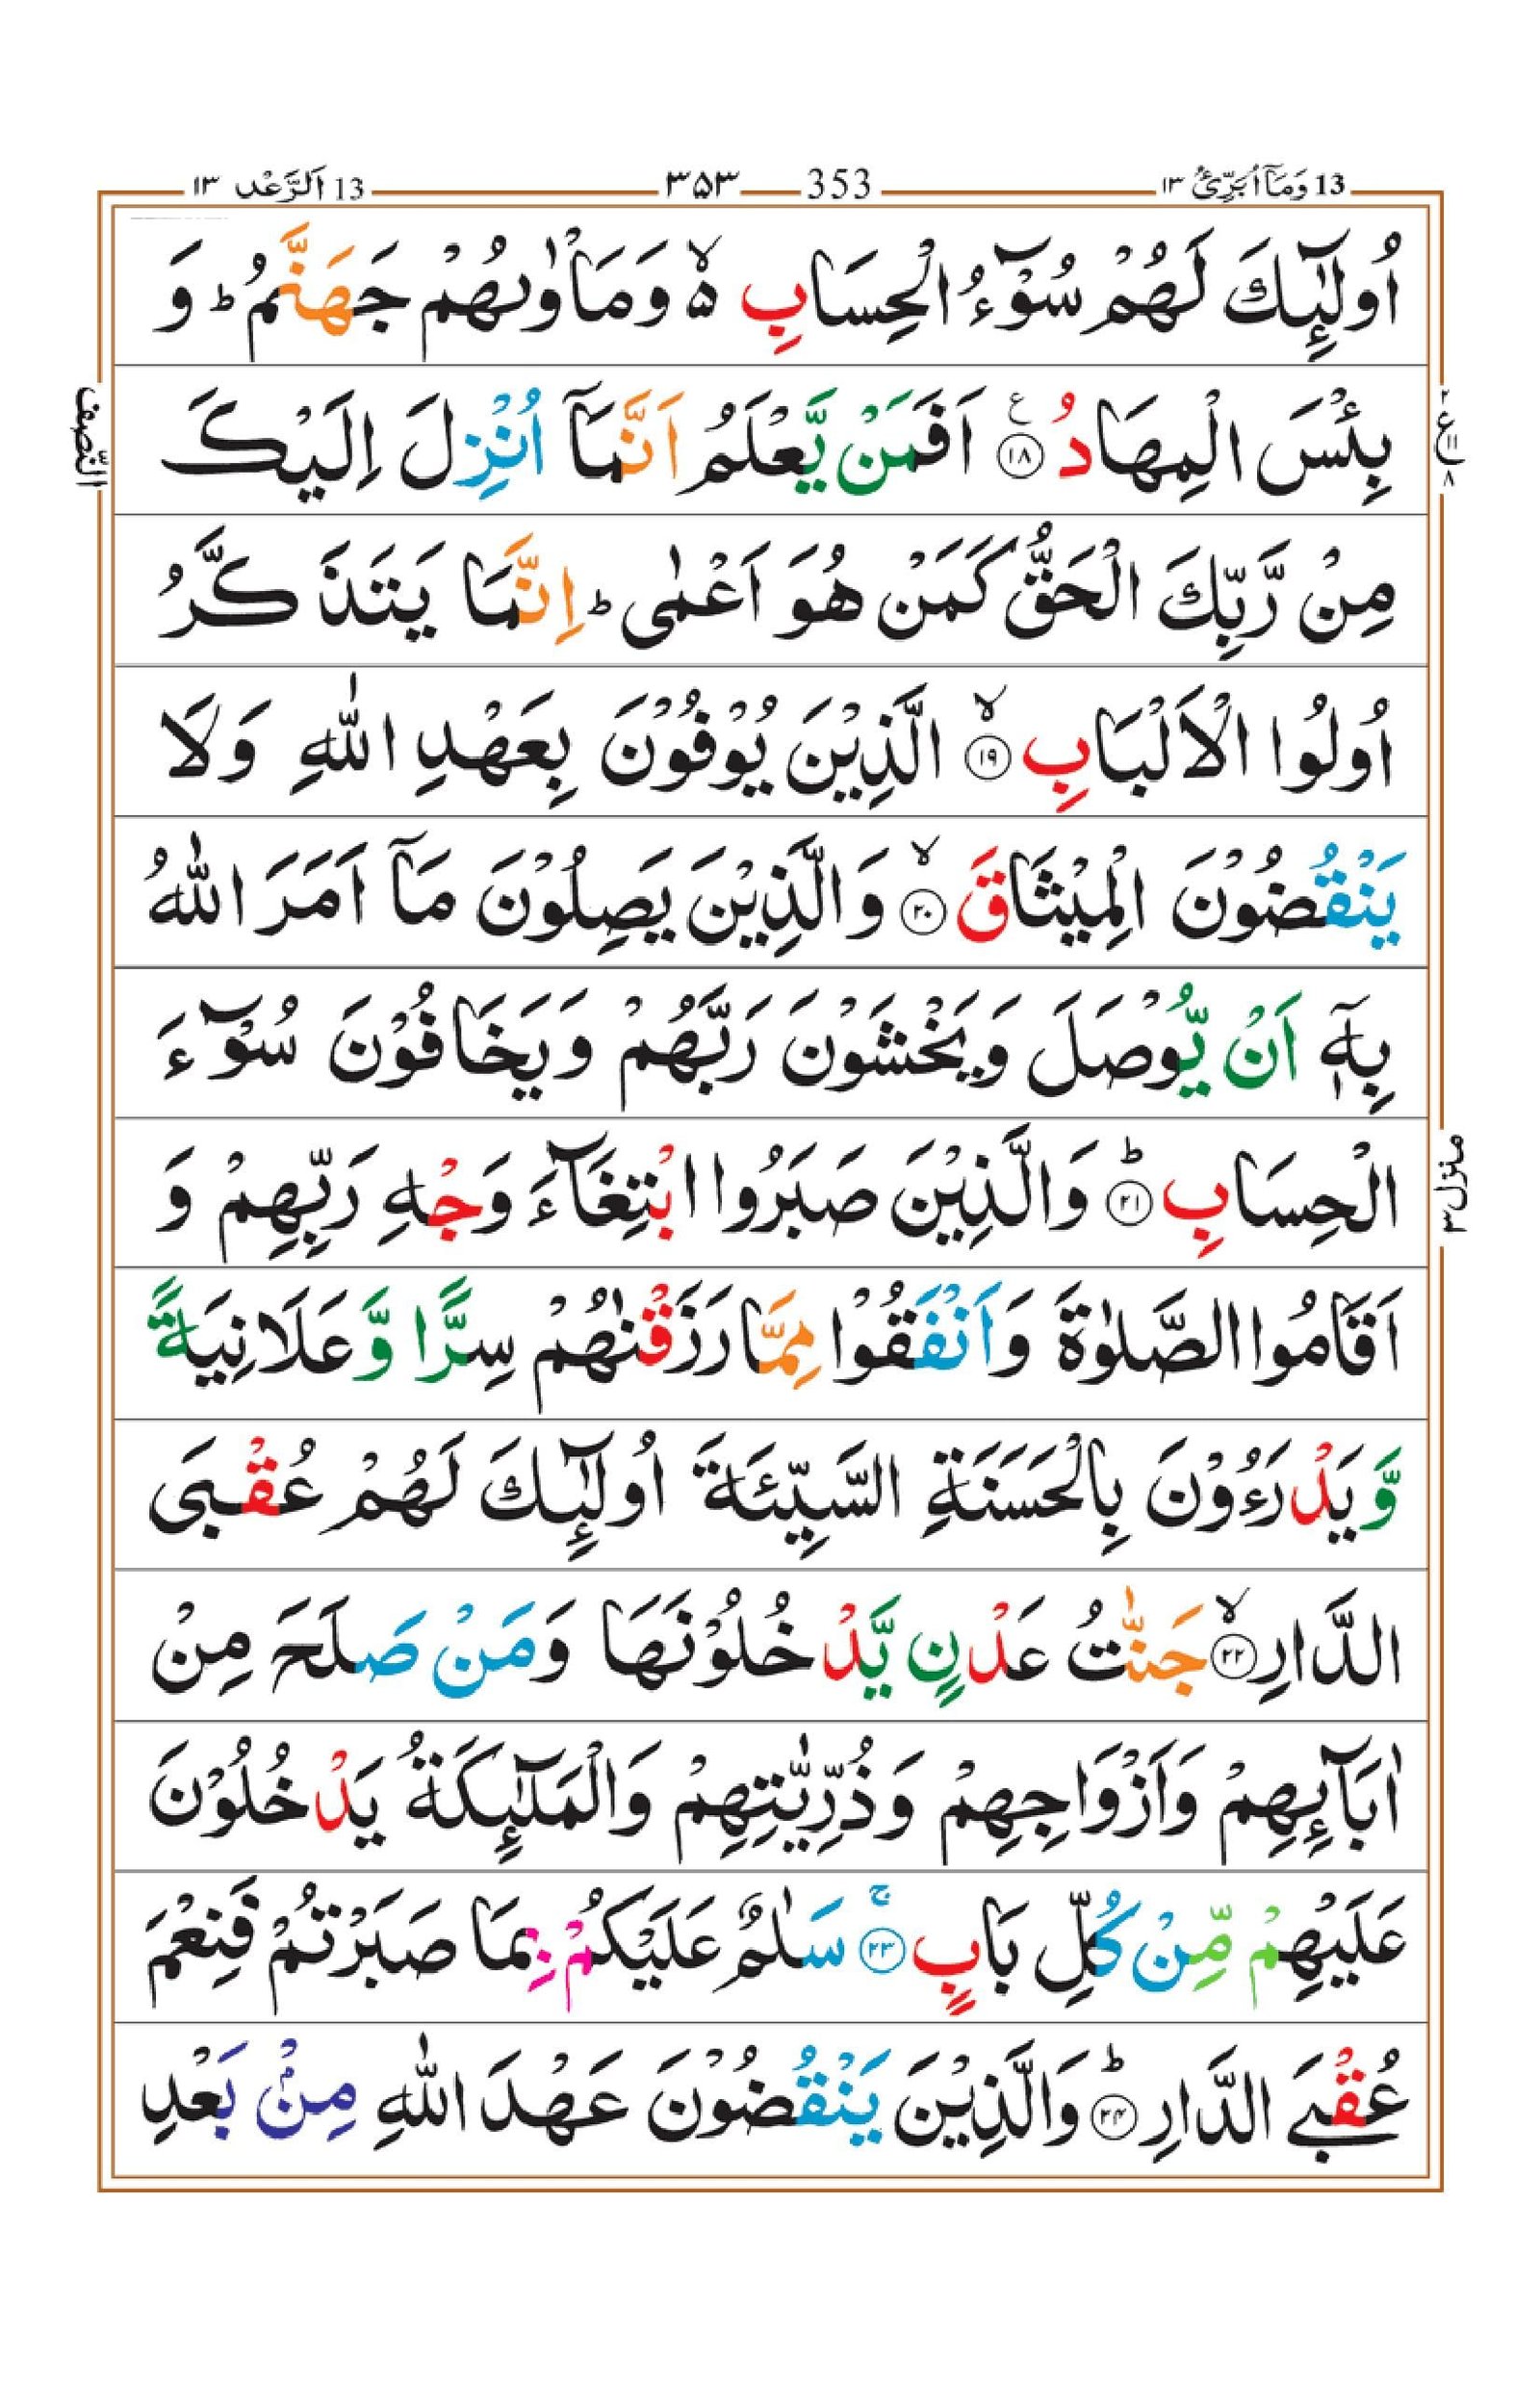 13 وَمَاۤ اُبَرِّئُ ١٣ 353 ٣٥٣ 13 اَلرَّعْد ١٣
اُولٰٓئِكَ لَهُمْ سُوْٓءُ الْحِسَابِ ۙ۬ وَمَاْوٰىهُمْ جَهَنَّمُ ؕ وَ
بِئْسَ الْمِهَادُ ﴿١٨﴾ ع اَفَمَنْ يَّعْلَمُ اَنَّمَاۤ اُنْزِلَ اِلَيْكَ
مِنْ رَّبِّكَ الْحَقُّ كَمَنْ هُوَ اَعْمٰى ؕ اِنَّمَا يَتَذَكَّرُ
اُولُوا الْاَلْبَابِ ﴿١٩﴾ ۙ الَّذِيْنَ يُوْفُوْنَ بِعَهْدِ اللّٰهِ وَلَا
يَنْقُضُوْنَ الْمِيْثَاقَ ﴿٢٠﴾ ۙ وَالَّذِيْنَ يَصِلُوْنَ مَاۤ اَمَرَ اللّٰهُ
بِهٖۤ اَنْ يُّوْصَلَ وَيَخْشَوْنَ رَبَّهُمْ وَيَخَافُوْنَ سُوْٓءَ
الْحِسَابِ ﴿٢١﴾ ؕ وَالَّذِيْنَ صَبَرُوا ابْتِغَآءَ وَجْهِ رَبِّهِمْ وَ
اَقَامُوا الصَّلٰوةَ وَاَنْفَقُوْا مِمَّا رَزَقْنٰهُمْ سِرًّا وَّعَلَانِيَةً
وَّيَدْرَءُوْنَ بِالْحَسَنَةِ السَّيِّئَةَ اُولٰٓئِكَ لَهُمْ عُقْبَى
الدَّارِ ﴿٢٢﴾ ۙ جَنّٰتُ عَدْنٍ يَّدْخُلُوْنَهَا وَمَنْ صَلَحَ مِنْ
اٰبَآئِهِمْ وَاَزْوَاجِهِمْ وَذُرِّيّٰتِهِمْ وَالْمَلٰٓئِكَةُ يَدْخُلُوْنَ
عَلَيْهِمْ مِّنْ كُلِّ بَابٍ ﴿٢٣﴾ ۚ سَلٰمٌ عَلَيْكُمْ بِمَا صَبَرْتُمْ فَنِعْمَ
عُقْبَى الدَّارِ ﴿٢٤﴾ ؕ وَالَّذِيْنَ يَنْقُضُوْنَ عَهْدَ اللّٰهِ مِنْۢ بَعْدِ
النّصف
منزل ٣